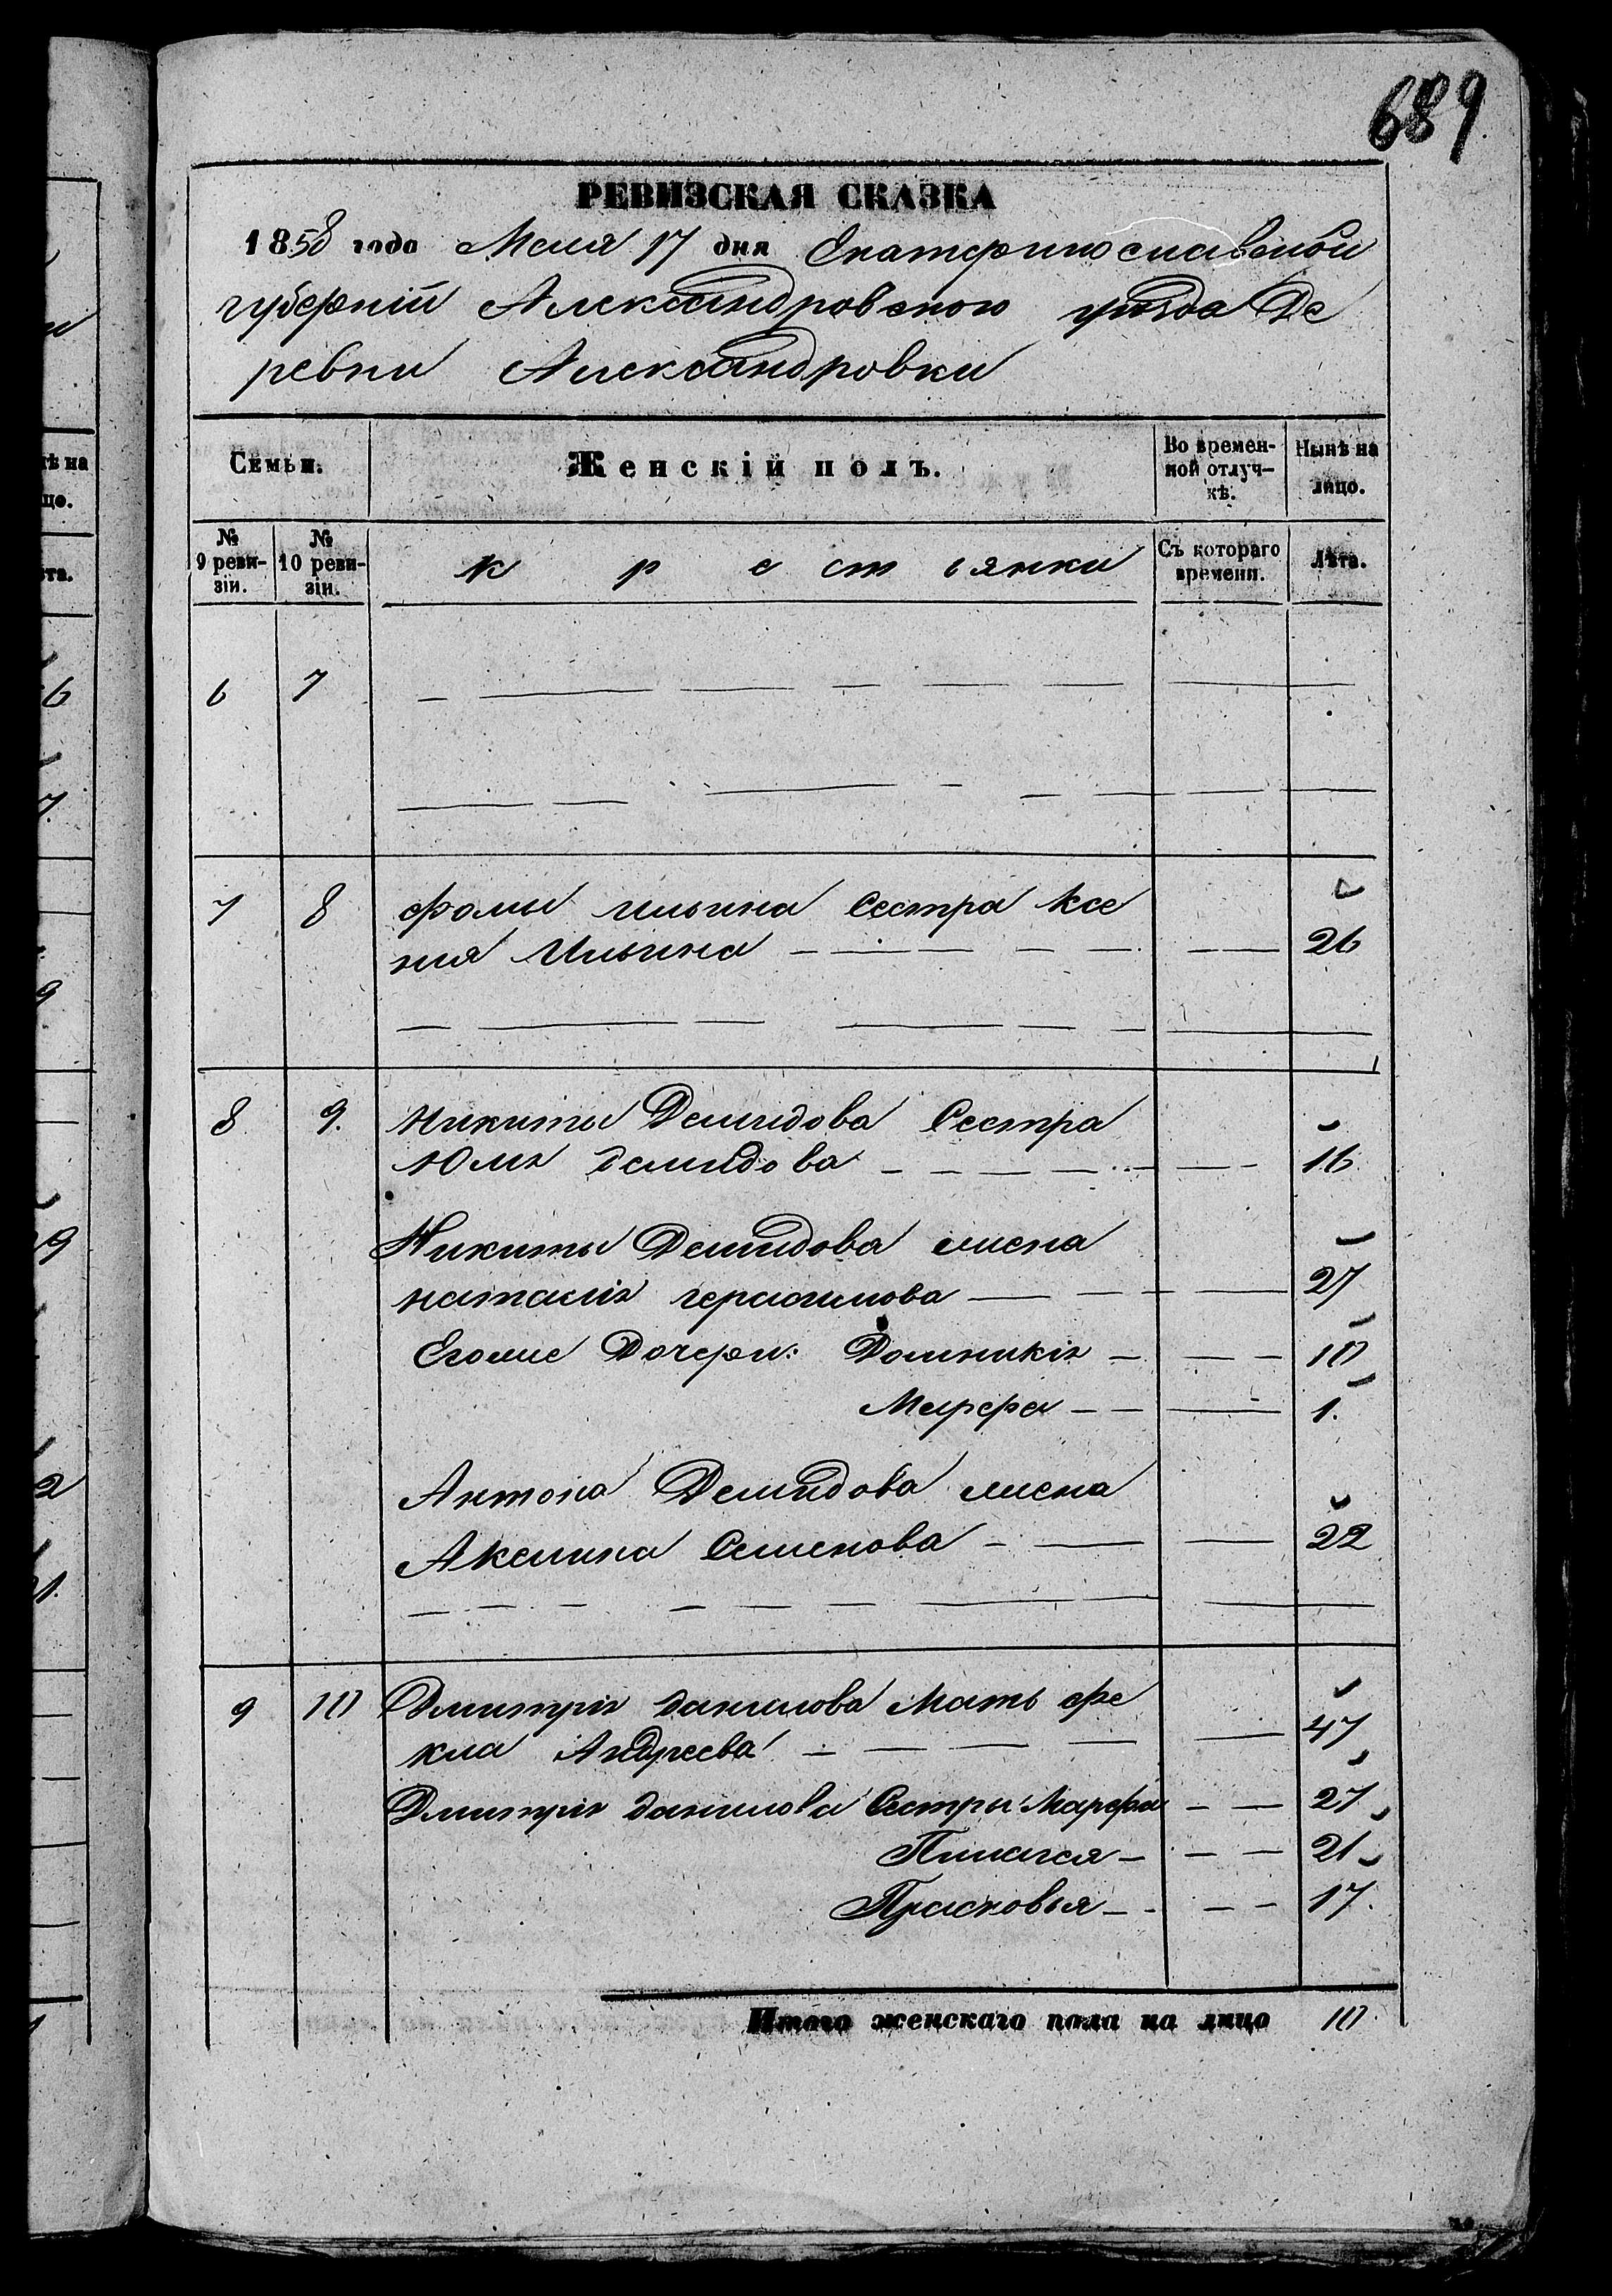 689
РЕВИЗСКАЯ СКАЗКА
1858 года Мая 17 дня Екатеринославской
губерній Александровского уѣзда Де
ревни Александровки
Семьи. Женскій полъ. Во времен- Нынѣ на
ной отлуч- лицо.
кѣ.
№ № к р е ст ьянки Съ котораго Лѣта.
9 реви- 10 реви- времени.
зіи. зіи.
6 7
7 8 Фомы Ильина Сестра Ксе
ния Ильина 26
8 9. Никиты Демидова Сестра
Юлія Демидова 16
Никиты Демидова жена
Наталія Герасимова 27
Егоже Дочери: Домникія 10
Марфа 1.
Антона Демидова жена
Акелина Семенова 22
9 10 Дмитрія Данилова Мать Фе
кла Андреева 47
Дмитрія Данилова Сестры Марфа 27
Пилагея 21
Прасковья 17.
Итого женскаго пола на лицо 10.